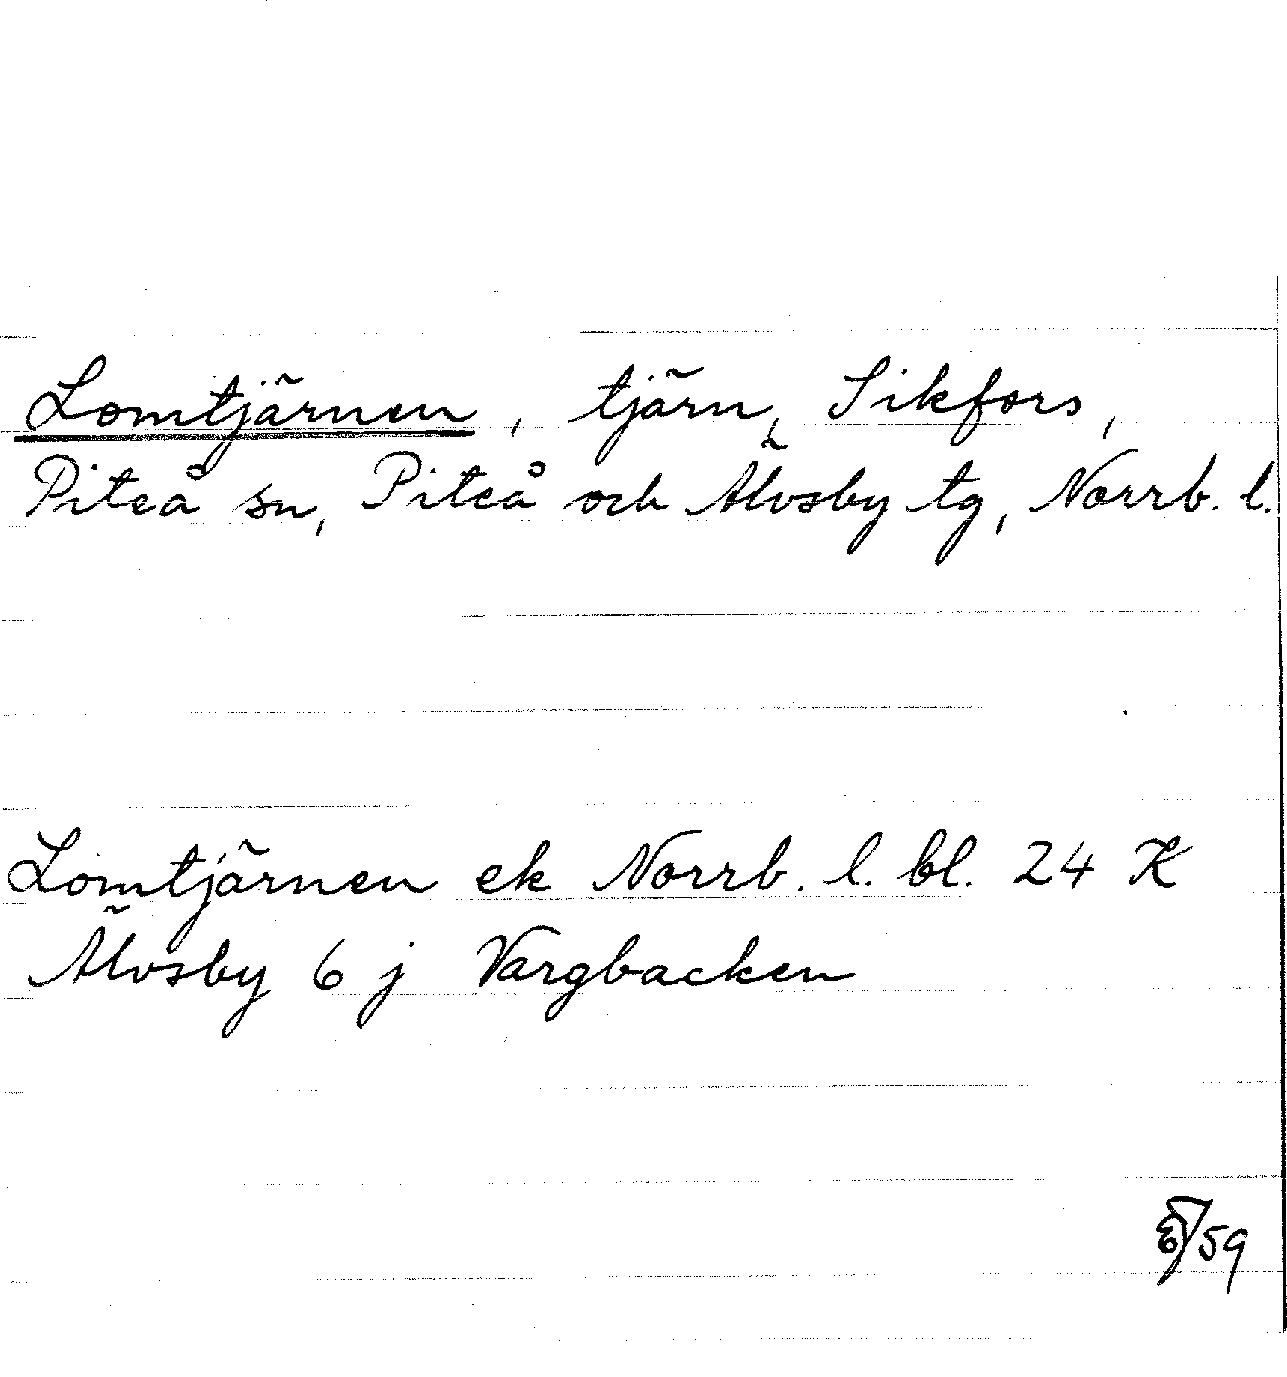 Lomtjärnen, tjärn, Sikfors,
Piteå sn, Piteå och Älvsby tg, Norrb. l.
Lomtjärnen ek Norrb. l. bl. 24 K
Älvsby 6 j Vargbacken
/59